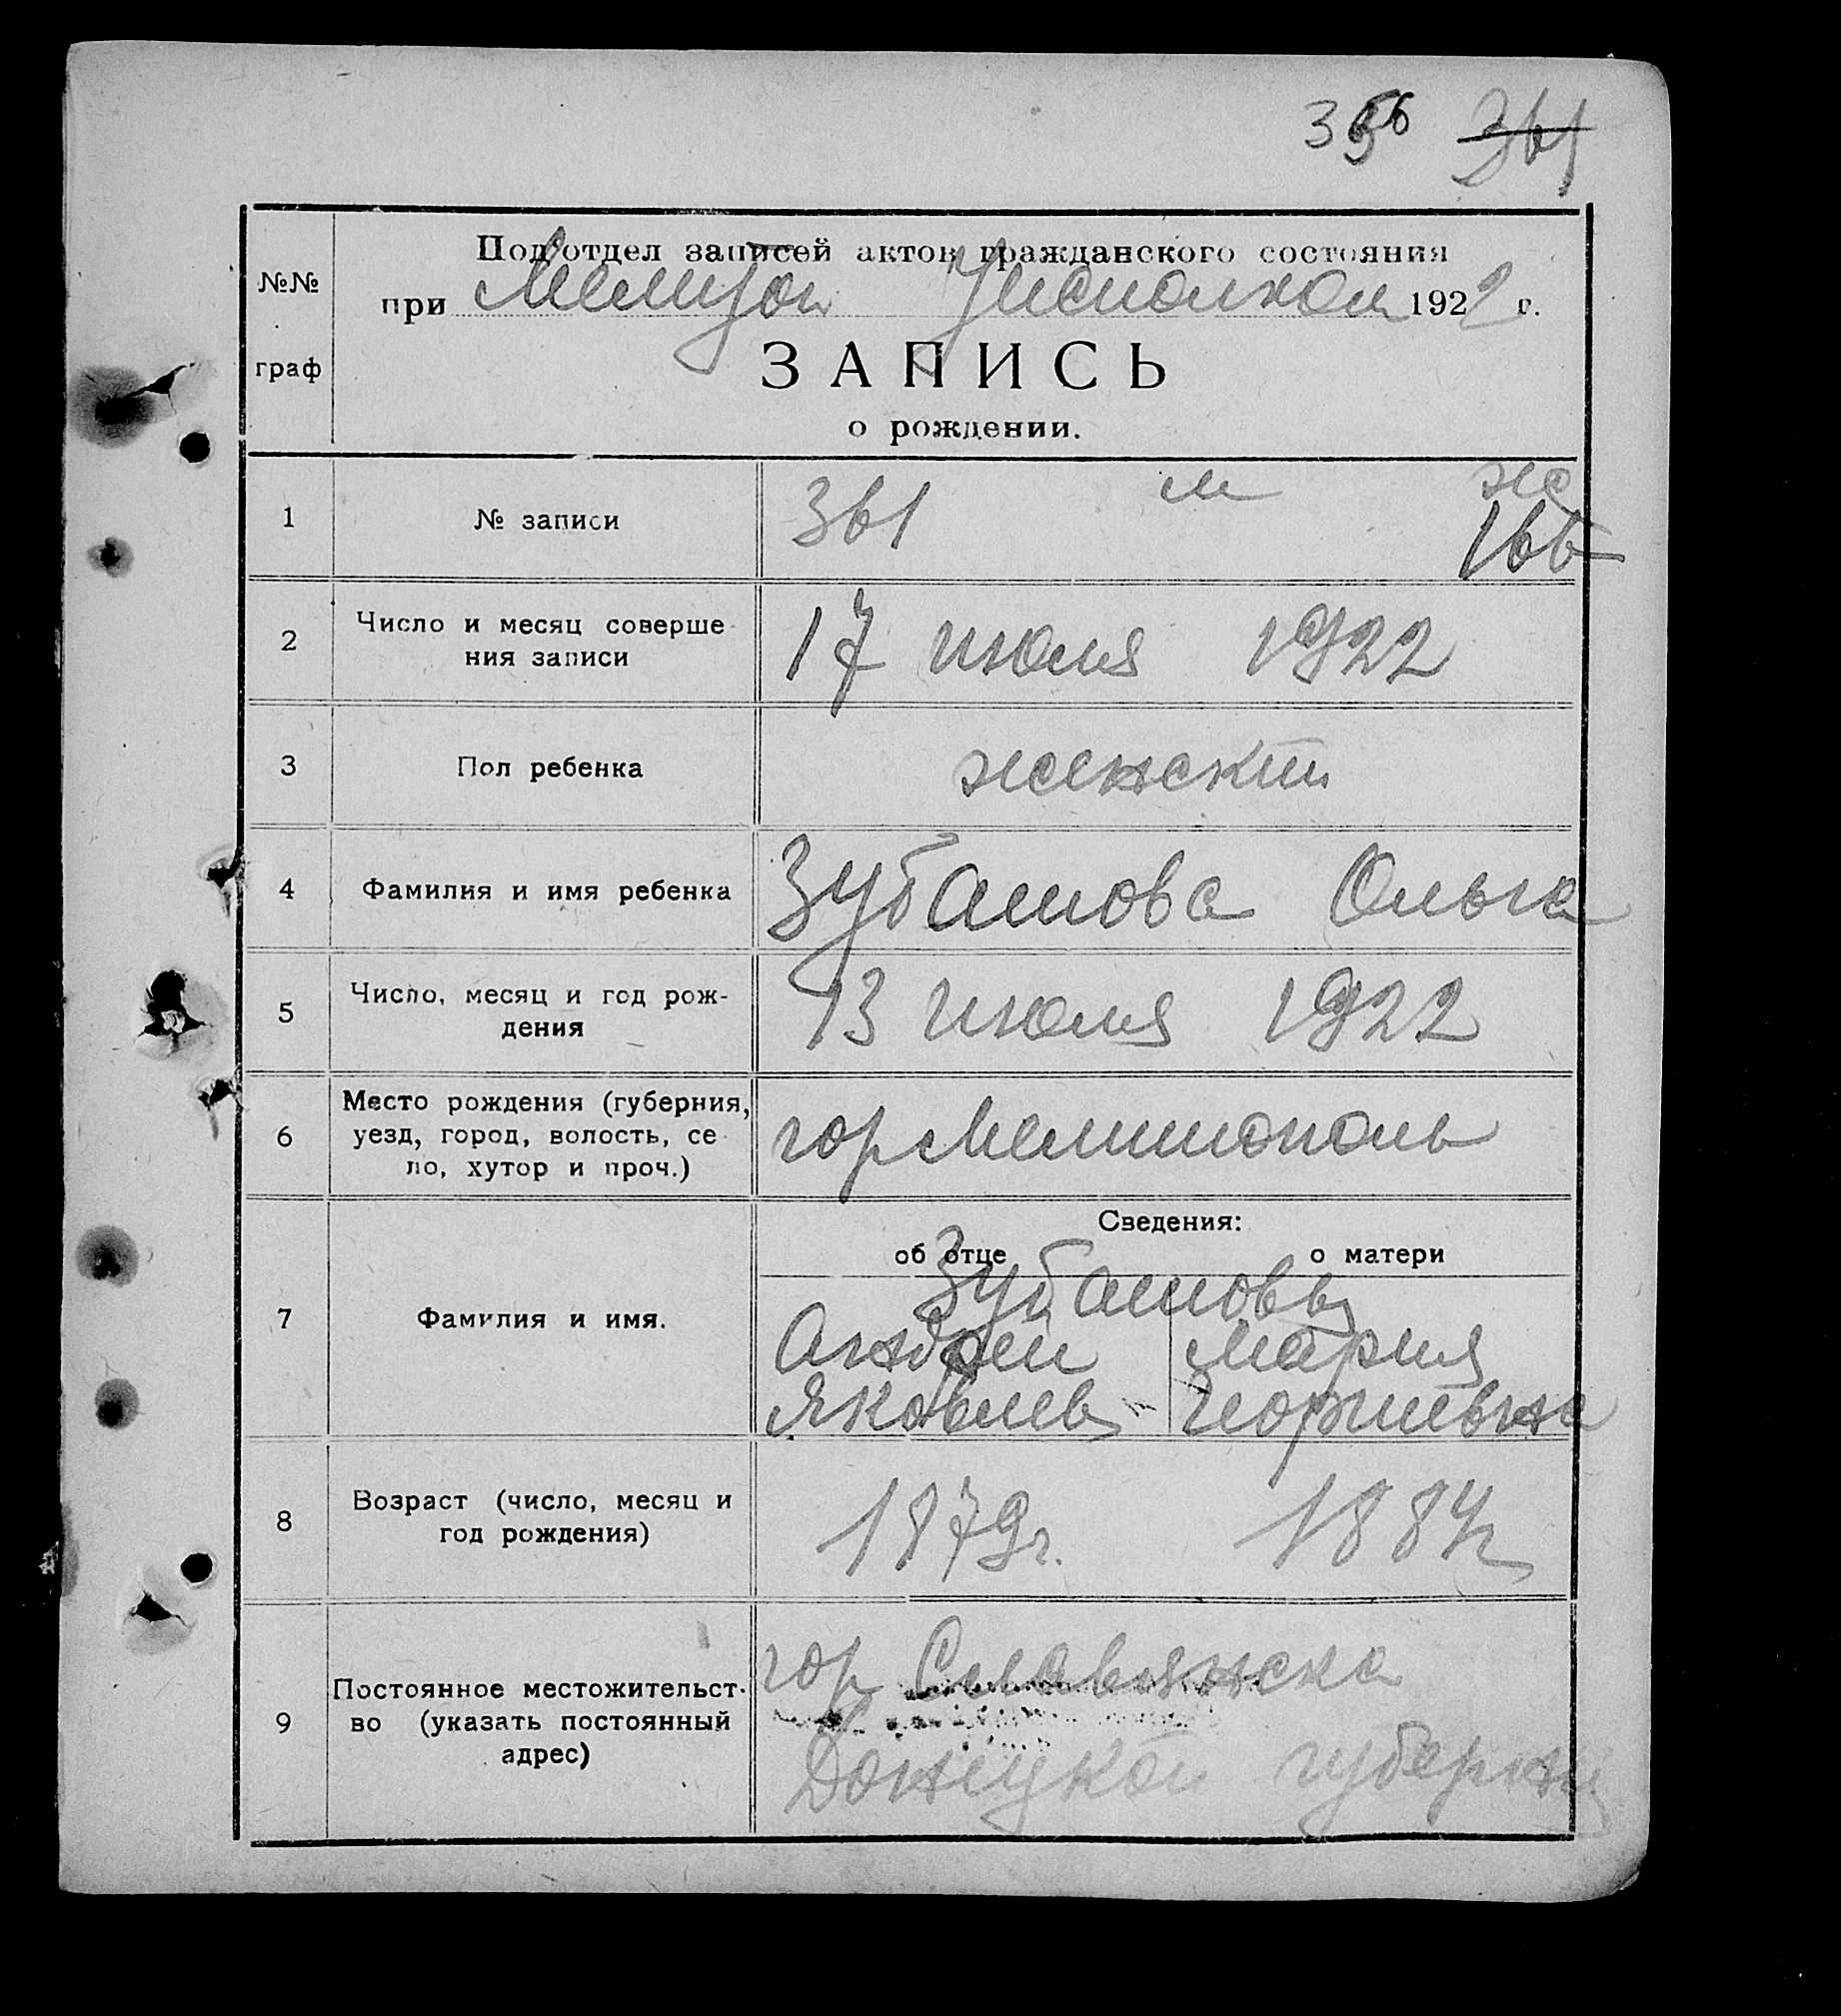 356 361
№№ граф
Подотдел записей актов гражданского состояния
при Мелит Уисполком 1922 г.
ЗАПИСЬ
о рождении.
1 № записи 361 м ж 166
2 Число и месяц соверше
ния записи 17 июля 1922
3 Пол ребенка женский
4 Фамилия и имя ребенка Зубашова Ольга
5 Число, месяц и год рож-
дения 13 июля 1922
6 Место рождения (губерния,
уезд, город, волость, се
ло, хутор и проч.) гор Мелитополь
Сведения:
об отце о матери
7 Фамилия и имя. Зубашовы
Андрей Мария
Яковлев Георгиевна
8 Возраст (число, месяц и
год рождения) 1879г. 1884г
9 Постоянное местожительст-
во (указать постоянный
адрес) гор Славянска
Донецкой губернии